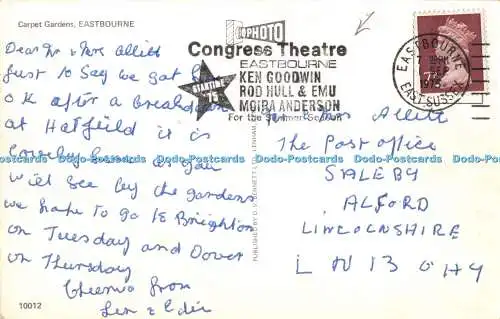 Carpet Gardens, EASTBOURNE
Dear Mr & Mrs Allitt
Just to Say we got here
O K after a breakdown
at Hatfield it is
lovely here as you
will see by the gardens
we hope to go to Brighton
on Tuesday and Dover
on Thursday
Cheerio from
Len & Edie
10012
PHOTO
Congress Theatre
EASTBOURNE
STARTIME
'75
KEN GOODWIN
ROD HULL & EMU
MOIRA ANDERSON
For the Summer Season
EASTBOURNE
1975
EAST SUSSEX
Mr & Mrs Allitt
The Post office
SALEBY
ALFORD
LINCOLNSHIRE
L N 13 0 H Y
Dodo-Postcards Dodo-Postcards Dodo-Postcards Dodo-Postcards Dodo-Postcards Dodo-Postcards